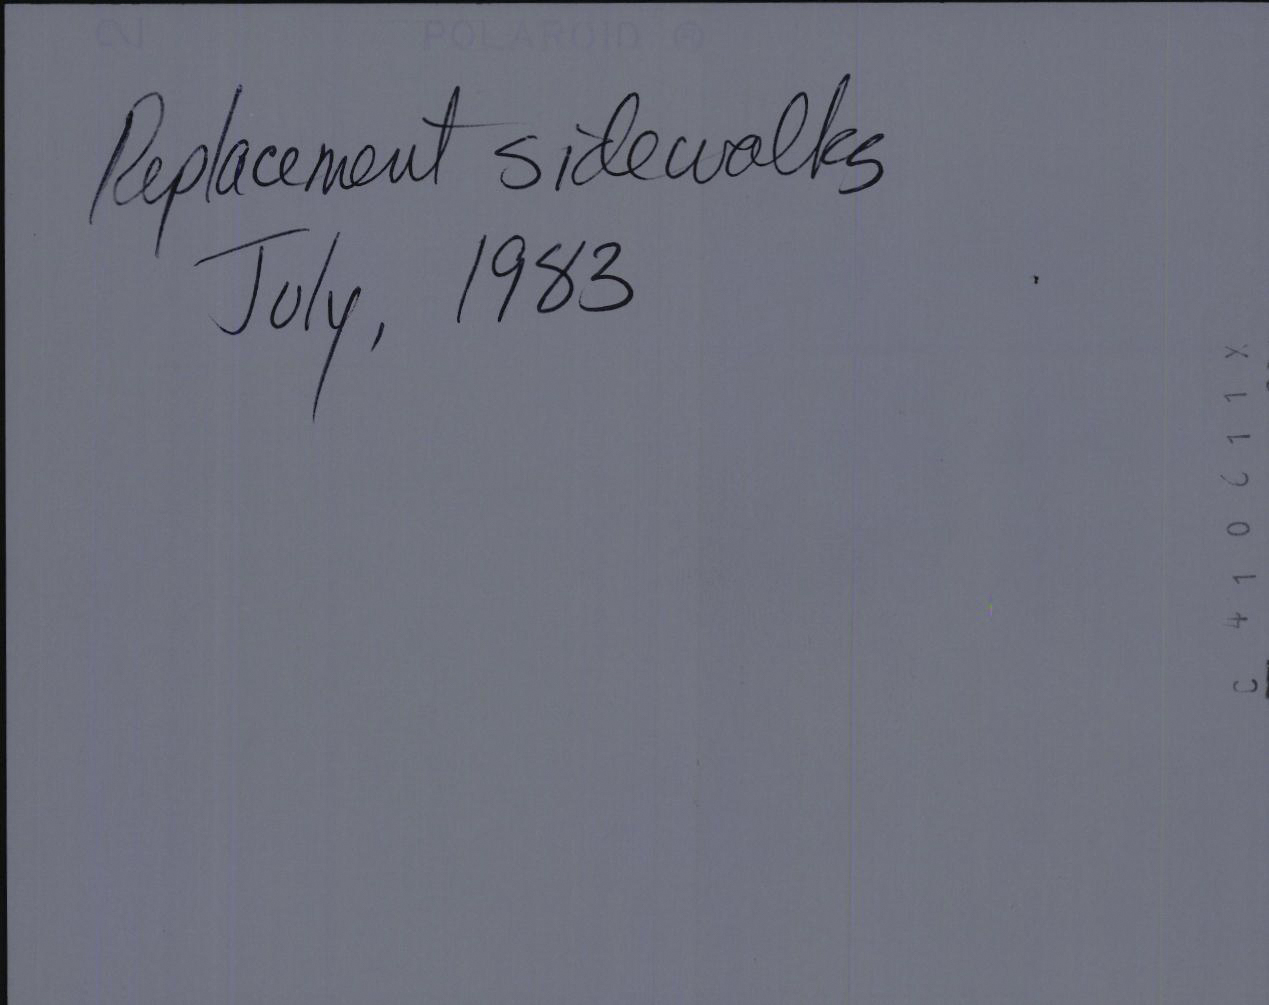 POLAROID ®
Replacement sidewalks
July, 1983
C 4106111X